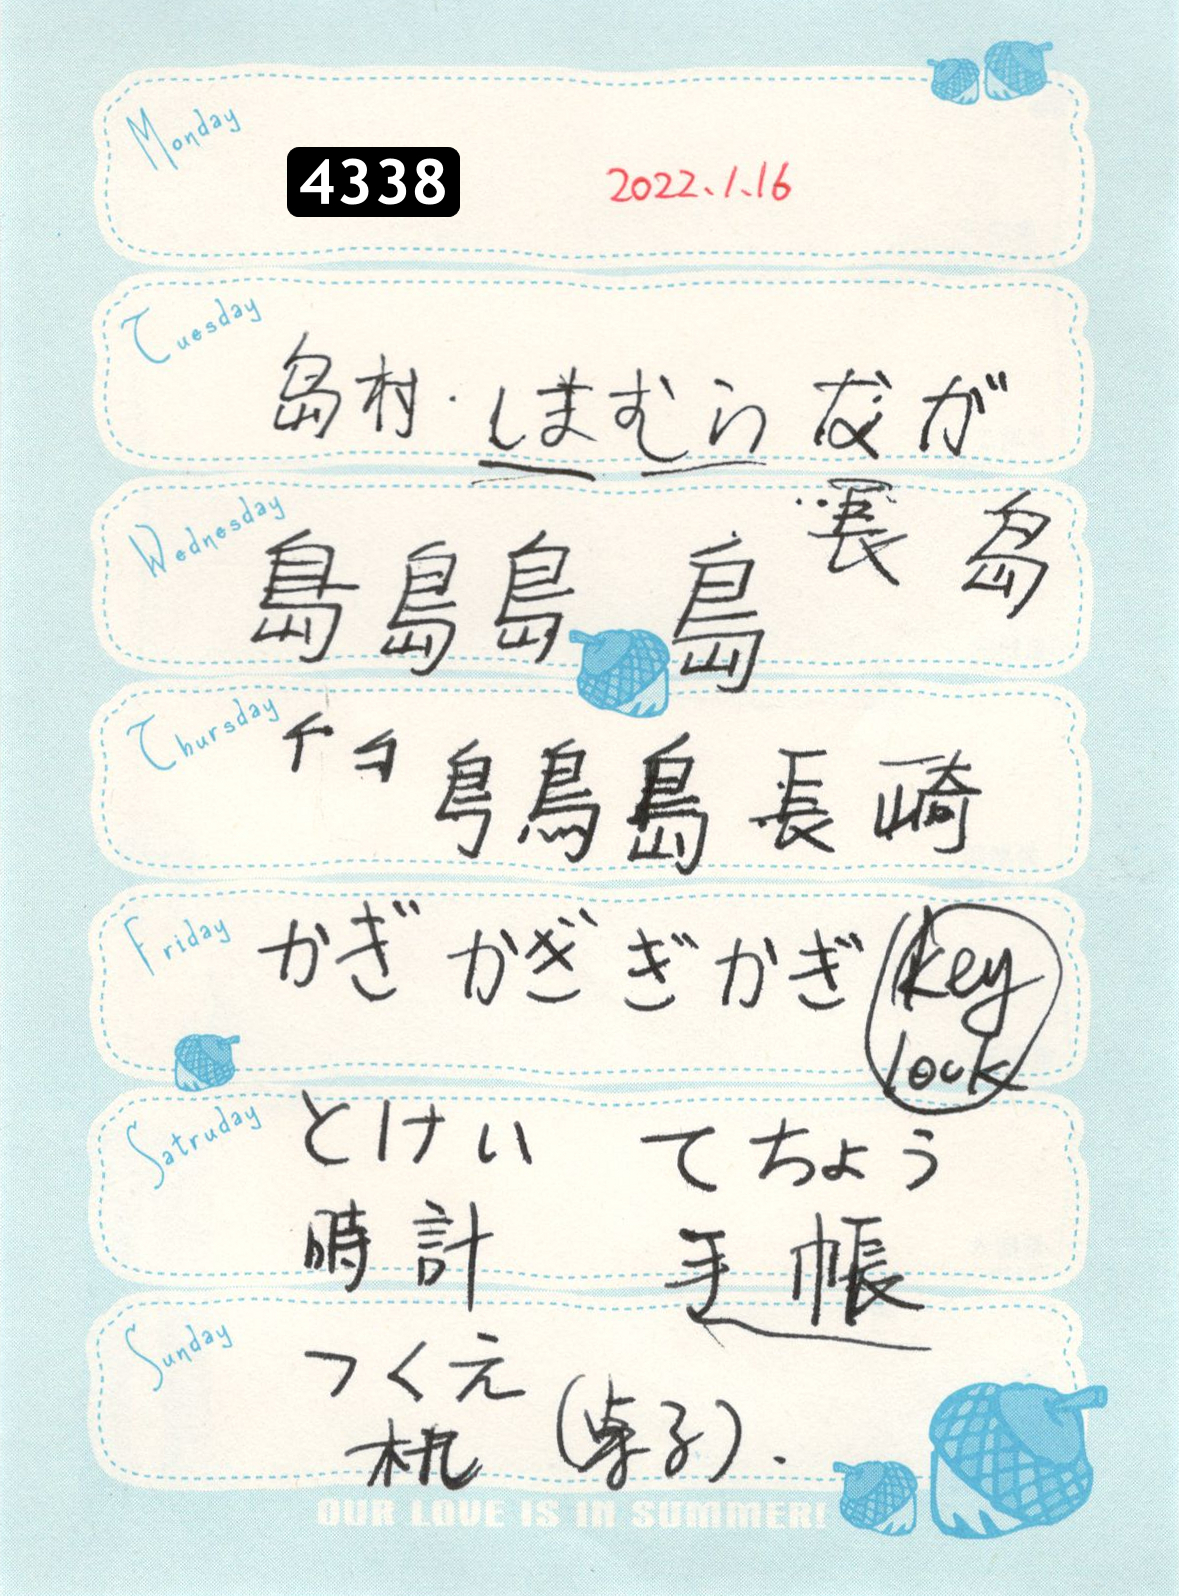 Monday
4338 2022.1.16
Tuesday
島村・しまむら なが
Wednesday
長 島
島 島 島 島
Thursday
島 長 崎
Friday
かぎ かぎ ぎ かぎ key
lock
Satruday
とけい てちょう
時計 手帳
Sunday
つくえ
机 (桌子).
OUR LOVE IS IN SUMMER!